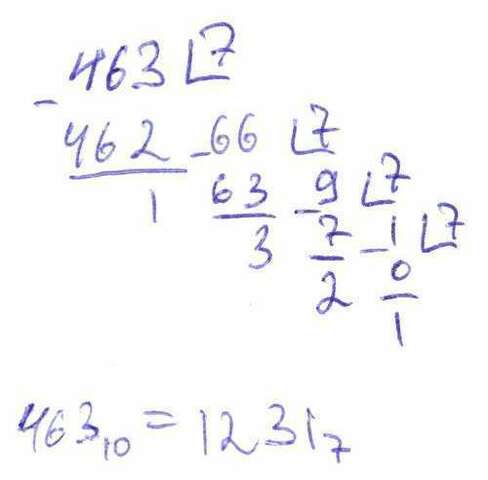 463 7
- 462 - 66 7
1 63 - 9 7
3 7 - 1 7
2 0
1
463₁₀ = 1231₇